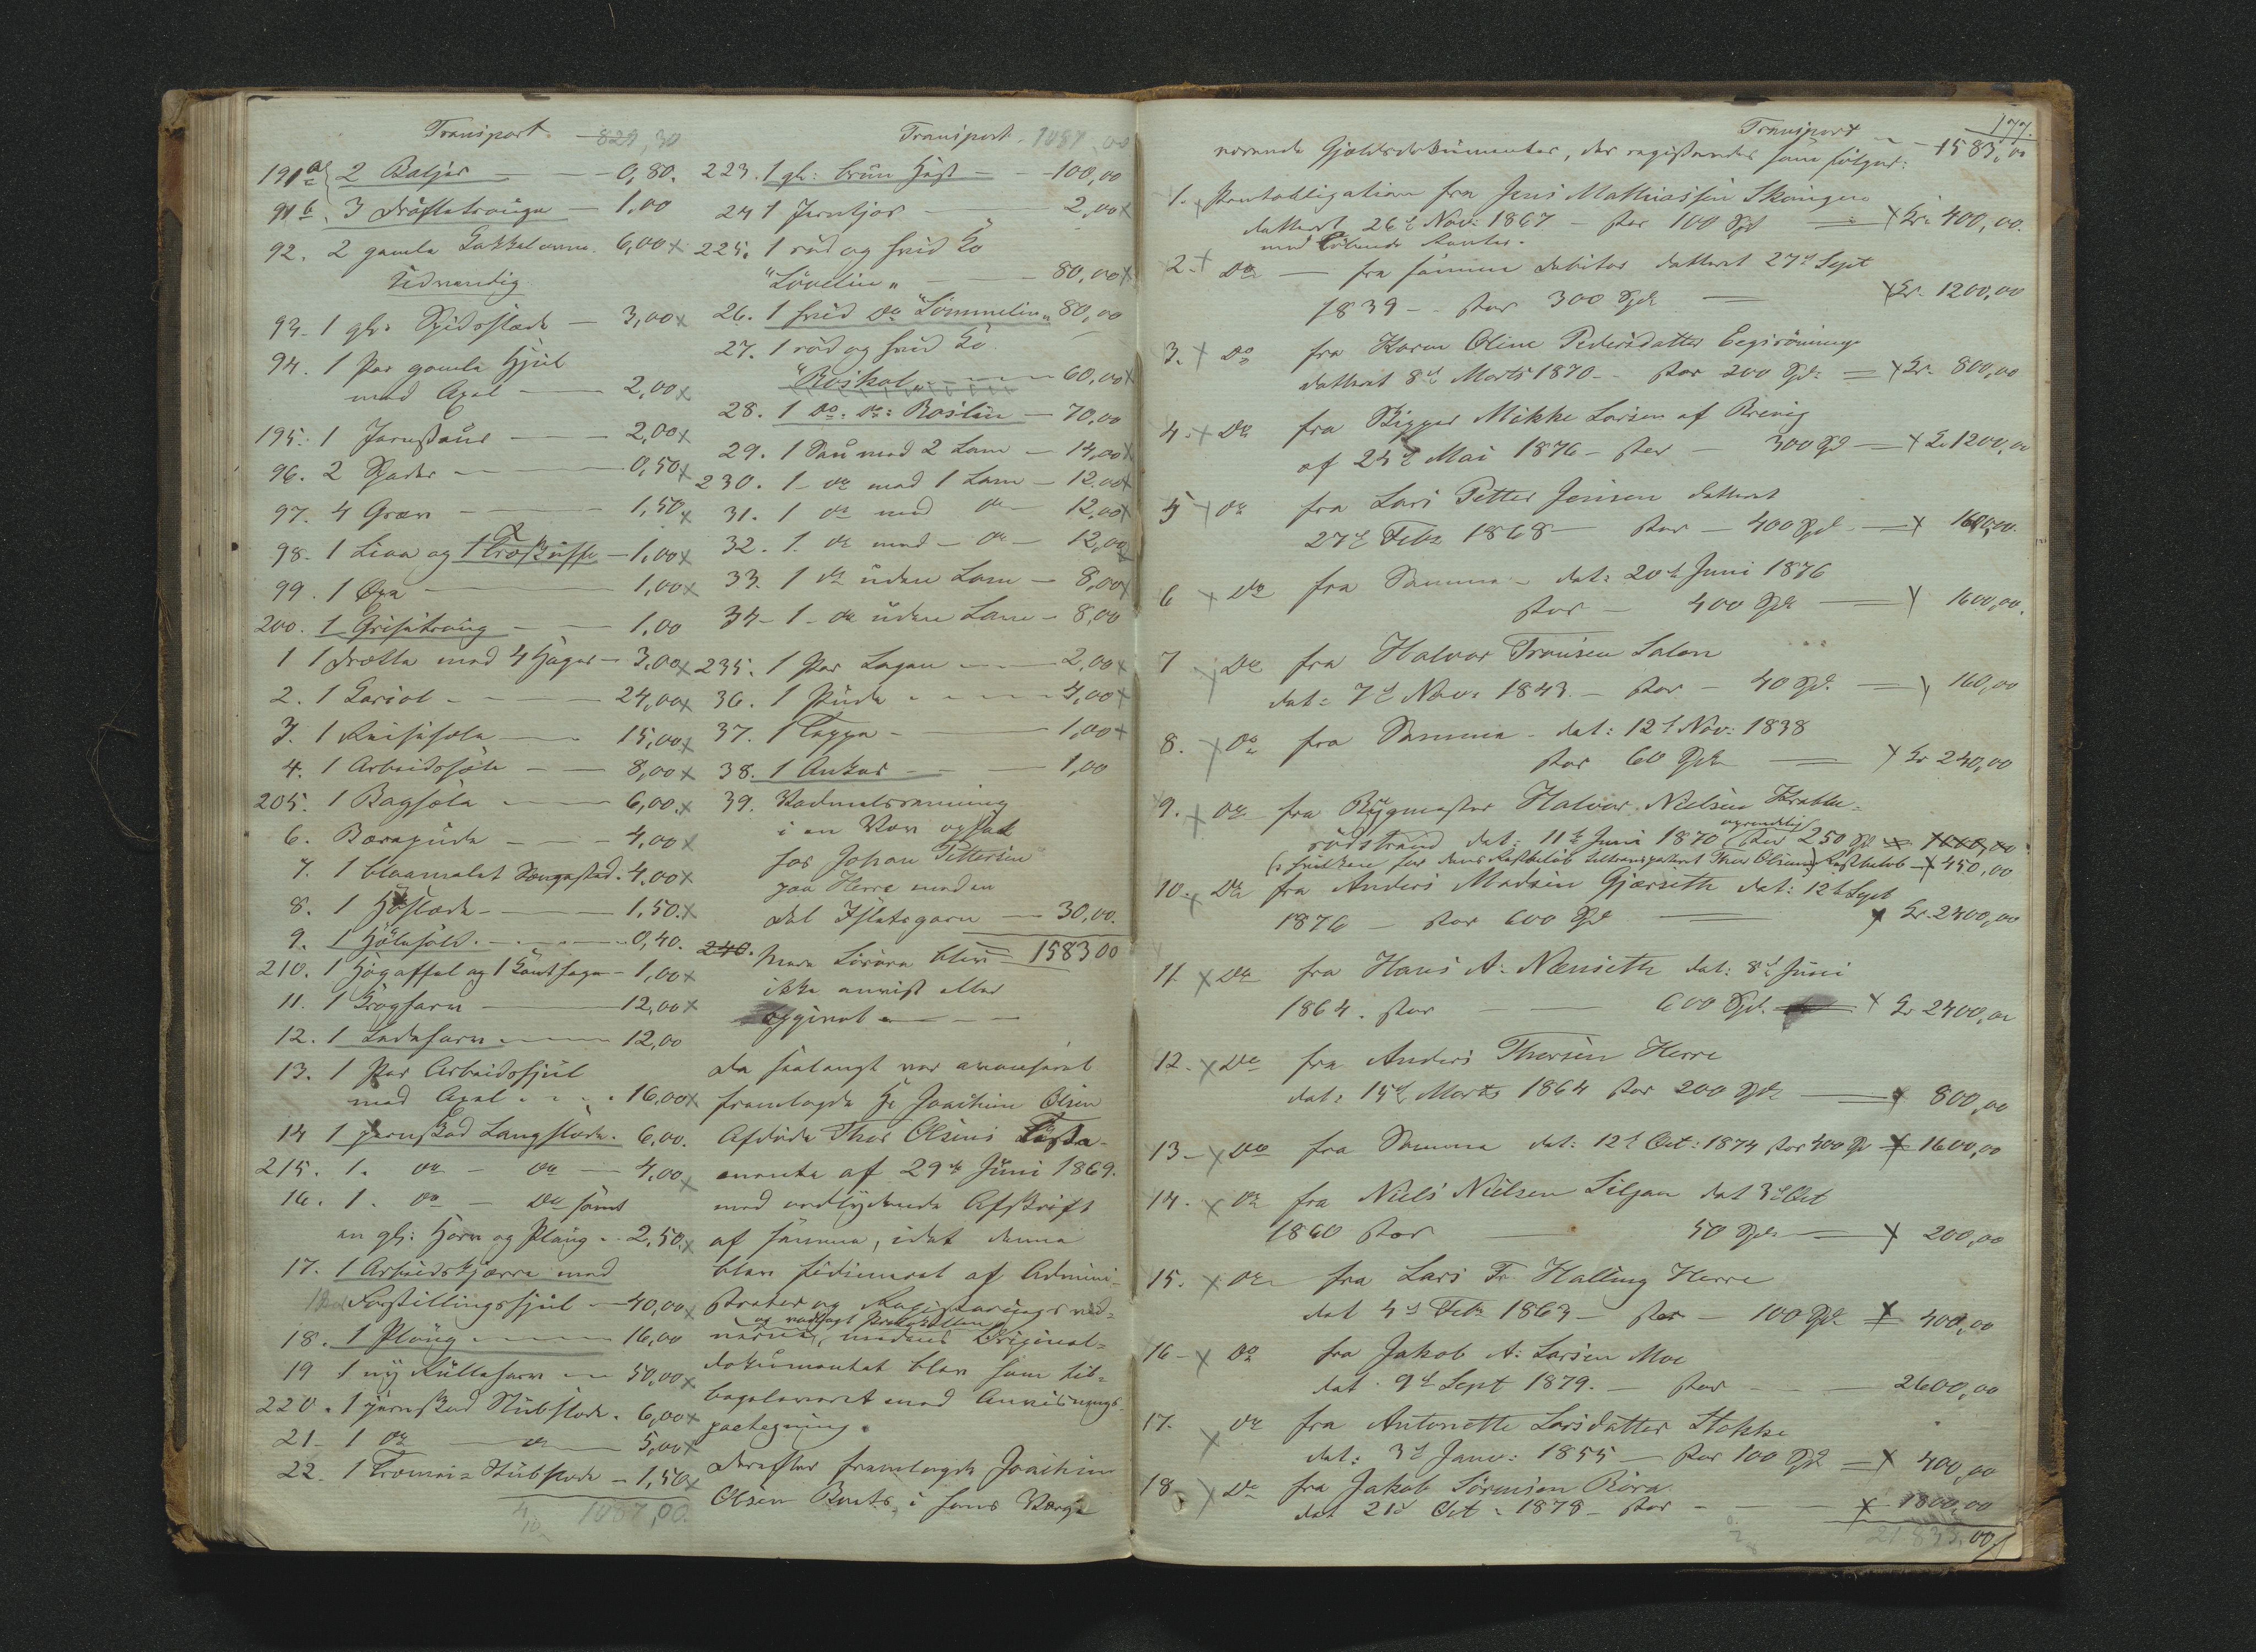 Transport 829,30
191 a 2 Baljer — 0,80.
91 b. 3 Drøftetrouge — 1,00
92. 2 gamle Kakkelovne. 6,00 x
Udvendig
93. 1 gl: Spidsslæde — 3,00 x
94. 1 Par gamle Hjul
med Axel — 2,00 x
195. 1 Jernstaur — 2,00 x
96. 2 Spader — 0,50 x
97. 4 Græv — 1,50 x
98. 1 Liaa og 1 — 1,00 x
99. 1 Øxe — 1,00 x
200. 1 Grisetroug — 1,00
1 1 Drætte med 4 Hager — 3,00 x
2. 1 Kariol — 24,00 x
3. 1 Reisesele — 15,00 x
4. 1 Arbeidssele — 8,00 x
205. 1 Bagsele — 6,00. x
6. Bærepude — 4,00 x
7. 1 blaamalet Sengested. 4,00 x
8. 1 Høslæde — 1,50. x
9. 1 — 0,40.
210. 1 Høgaffel og 1 — 1,00 x
11. 1 — 12,00 x
12. 1 — 12,00
13. 1 Par Arbeidshjul
med Axel — 16,00 x
14 1 jernskod Langslæde. 6,00.
215. 1. do — do — 4,00 x
16. 1. do — do samt
en gl: Harv og Ploug — 2,50 x
17. 1 Arbeidskjærre med
Forstillingshjul — 40,00 x
18. 1 Ploug — 16,00
19 1 ny Rulleharv — 50,00 x
220. 1 jernskod Stubslæde. 6,00 x
21- 1 do — do — 5,00 x
22. 1 Stubslæde — 1,50 x
1087,00.
Transport 1087,00
223. 1 gl: brun Hest — 100,00
24 1 — 2,00 x
225. 1 rød og hvid Ko
"Løvelin" — 80,00 x
26. 1 hvid do "Sommelin" 80,00
27. 1 rød og hvid Ko
"Roskol" — 60,00 x
28. 1 do. do: Roslin — 70,00
29. 1 Sau med 2 Lam — 14,00 x
230. 1 - do med 1 Lam — 12,00 x
31. 1 do med do — 12,00 x
32. 1. do med — do — 12,00
33. 1 do uden Lam — 8,00 x
34 - 1 - do uden Lam — 8,00
235. 1 Par Lagen — 2,00 x
36. 1 Pude — 4,00 x
37. 1 Teppe — 1,00 x
38. 1 Anker — 1,00
39. Vadmelsrenning
i en Væv opsat
hos Johan Pettersen
paa Herre med en
del Islætsgarn — 30,00.
1583 00
240. Mere Løsøre blev
ikke anvist eller
opgivet —
Da saalangt var avanceret
fremlagde Hr Joachim Olsen
Afdøde Thor Olsens Testa-
mente af 29de Juni 1869.
med vedlydende Afskrift
af samme, idet denne
blev fidimeret af Admini-
strator og Registreringsvid-
og vedlagt Protokollen
nerne, medens Original-
dokumentet blev ham til-
bageleveret med Anvisnings-
paategning.
Derefter fremlagde Joachim
Olsen Bunts, i hans Værge
177.
Transport — 1583,00
værende Gjældsdokumenter, der registreredes som følger:
1. x Pantobligation fra Jens Mathiassen Skougen
datteret 26de Nov: 1867 — stor 100 Spd — x Kr. 400,00.
med løbende Renter.
2. x Do — fra samme Debitor datteret 27de Sept
1839 — stor 300 Spd — x Kr. 1200,00
3. x Do fra Karen Oline Pedersdatter
datteret 8de Marts 1870 — stor 200 Spd = x Kr. 800,00
4. x Do fra Skipper Mikke Larsen af Brevig
af 25de Mai 1876 — stor — 300 Spd — x Kr 1200,00
5 x do fra Lars Petter Jensen datteret
27de Febr 1868 — stor — 400 Spd — x 1600,00.
6 x Do fra Samme — dat: 20de Juni 1876
stor — 400 Spd — x 1600,00.
7 x Do fra Halvor Transen Salen
dat: 7de Nov: 1843. — stor — 40 Spd. — x 160,00
8. x Do fra Samme — dat: 12te Nov: 1838
stor 60 Spd — x Kr 240,00
9. x do fra Bygmester Halvor Nielsen Krabbe-
rødstrand dat: 11te Juni 1870 oprindelig stor 250 Spd 1000,00
(i hvilken for dens Restbeløb tiltransporteret Thor Olsen) Restbeløb x 450,00
10. x Do fra Anders Madsen Gjærseth dat: 12te Sept
1876 — stor 600 Spd — x Kr. 2400,00
11. x Do fra Hans A: Nænseth dat: 8de Juni
1864. stor — 600 Spd. — x Kr 2400,00
12. x Do fra Anders Thorsen Herre
dat: 15de Marts 1864 stor 200 Spd — x 800,00
13. x Do fra Samme dat: 12te Oct: 1874 stor 400 Sp x 1600,00
14. x do fra Niels Nielsen Siljan dat 3de Oct
1860 stor — 50 Spd — x 200,00
15. x do fra Lars Fr Halling Herre
dat 4de Febr 1863 — stor — 100 Spd x 400,00
16 - x Do fra Jakob A: Larsen Moe
dat. 9de Sept 1879. — stor — 2600,00
17. x do fra Antonette Larsdatter Stokke
dat: 3de Janv: 1855 — stor 100 Spd — x 400,00
18. x Do fra Jakob Sørensen Røra
dat 21de Oct: 1878 — stor — x 1800,00
21.833,00